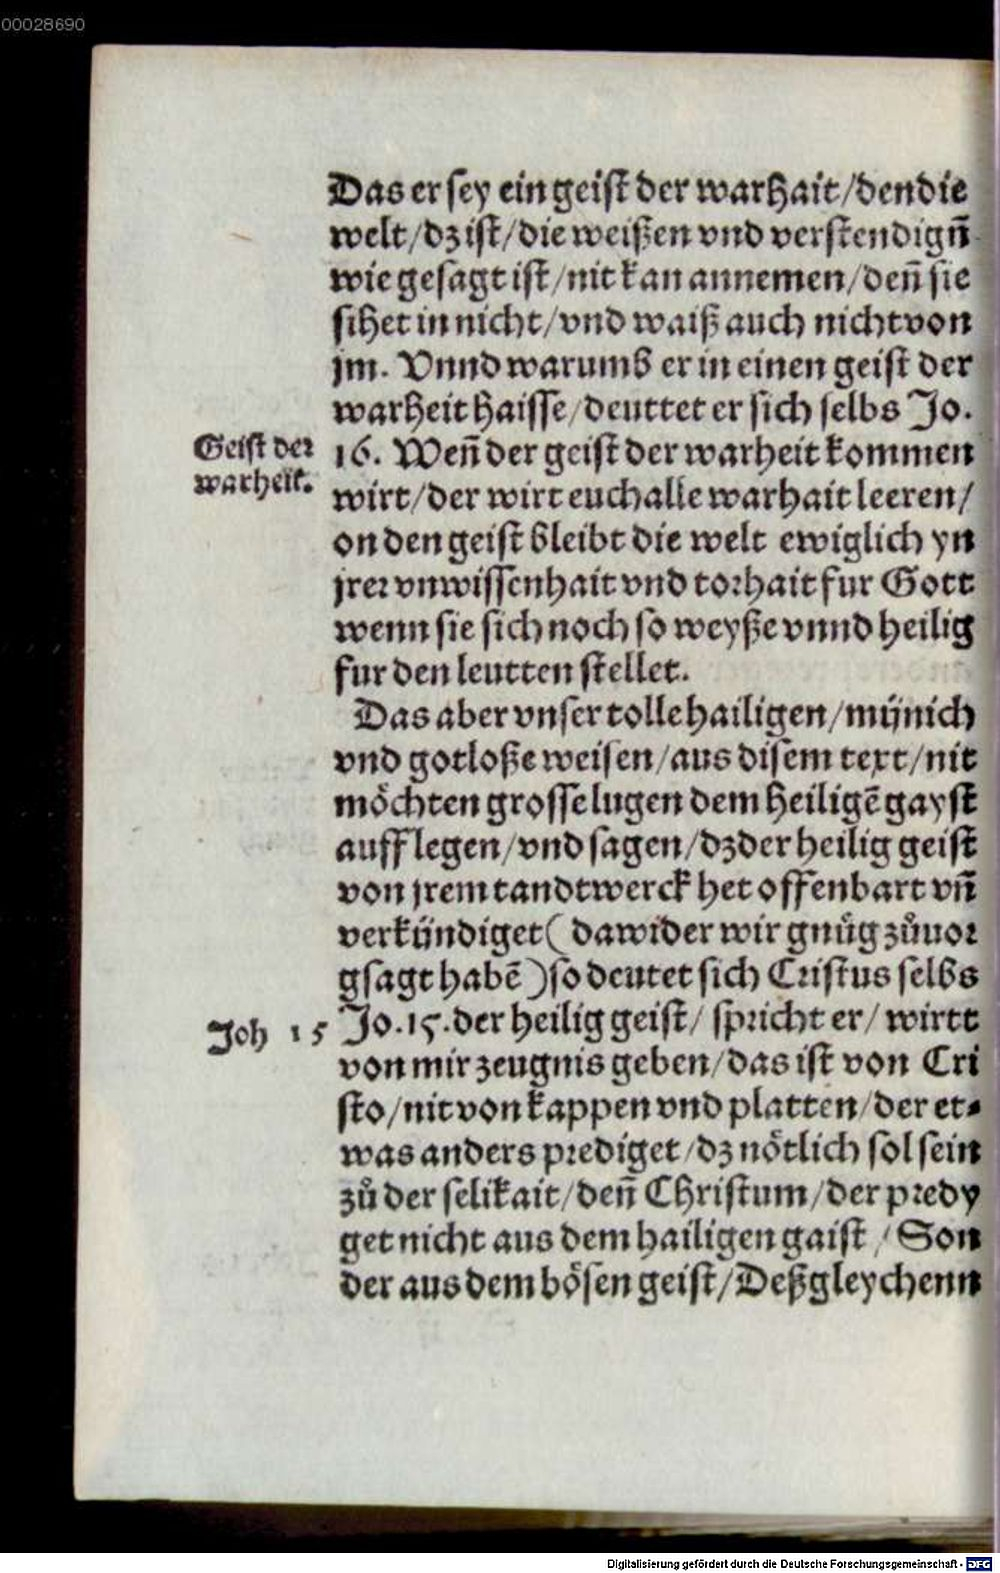 00028690
Das er sey ein geist der warhait/den die
welt/dz ist/die weißen vnd verstendign̄
wie gesagt ist/nit kan annemen/den̄ sie
sihet in nicht/vnd waiß auch nicht von
jm. Vnnd warumb er in einen geist der
warheit haisse/deuttet er sich selbs Jo.
Geist der
warheit.
16. Wen̄ der geist der warheit kommen
wirt/der wirt euch alle warhait leeren/
on den geist bleibt die welt ewiglich yn
jrer vnwissenhait vnd torhait fur Gott
wenn sie sich noch so weyße vnnd heilig
fur den leutten stellet.
Das aber vnser tolle hailigen/münich
vnd gotloße weisen/aus disem text/nit
möchten grosse lugen dem heiligē gayst
auff legen/vnd sagen/dz der heilig geist
von jrem tandtwerck het offenbart vn̄
verkündiget( dawider wir gnůg zůuor
gsagt habē )so deutet sich Cristus selbs
Joh 15
Jo.15.der heilig geist/ spricht er/ wirtt
von mir zeugnis geben/das ist von Cri
sto/nit von kappen vnd platten/der et⸗
was anders prediget/dz nötlich sol sein
zů der selikait/den̄ Christum/der predy
get nicht aus dem hailigen gaist/Son
der aus dem bösen geist/Deßgleychenn
Digitalisierung gefördert durch die Deutsche Forschungsgemeinschaft - DFG